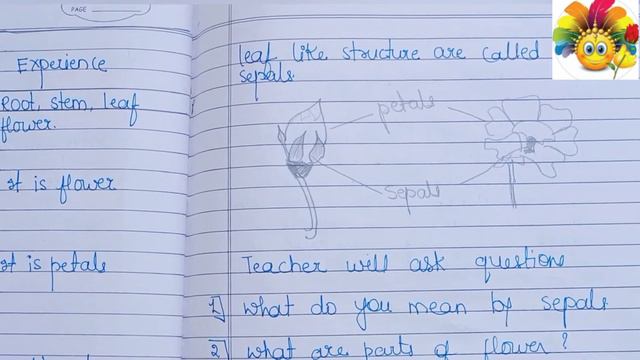 PAGE
Experience
Root, stem, leaf
flower.
It is flower
It is petals
leaf like structure are called
sepals
petals
sepals
Teacher will ask questions
1] what do you mean by sepals
2] what are parts of flower?